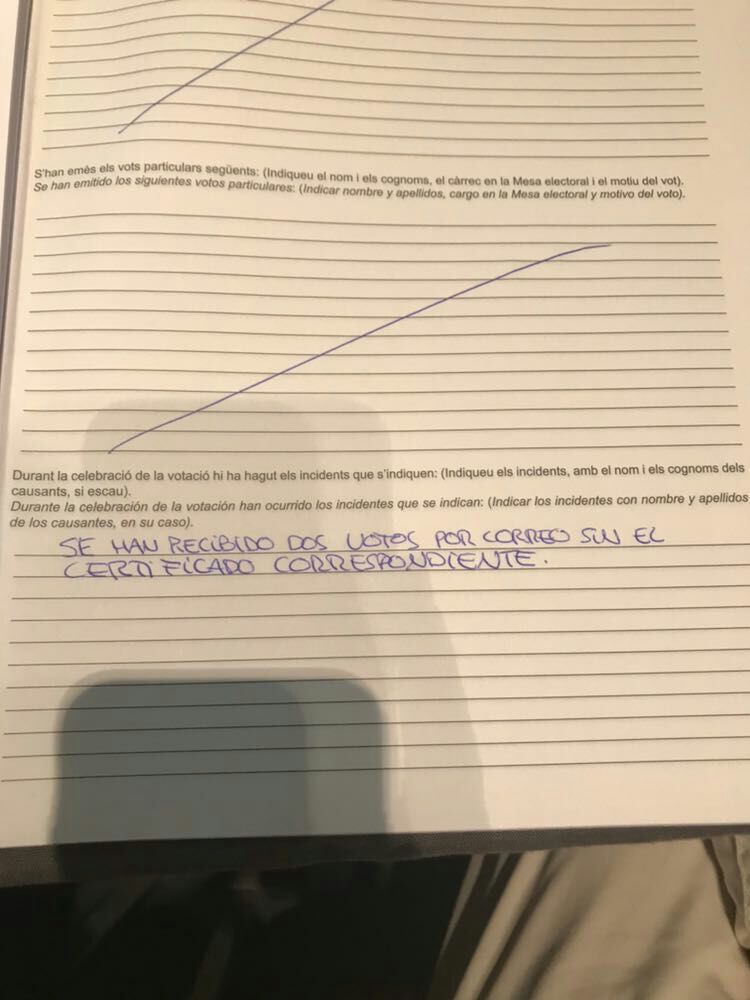 S'han emès els vots particulars següents: (Indiqueu el nom i els cognoms, el càrrec en la Mesa electoral i el motiu del vot).
Se han emitido los siguientes votos particulares: (Indicar nombre y apellidos, cargo en la Mesa electoral y motivo del voto).
Durant la celebració de la votació hi ha hagut els incidents que s'indiquen: (Indiqueu els incidents, amb el nom i els cognoms dels
causants, si escau).
Durante la celebración de la votación han ocurrido los incidentes que se indican: (Indicar los incidentes con nombre y apellidos
de los causantes, en su caso).
SE HAN RECIBIDO DOS VOTOS POR CORREO SIN EL
CERTIFICADO CORRESPONDIENTE.